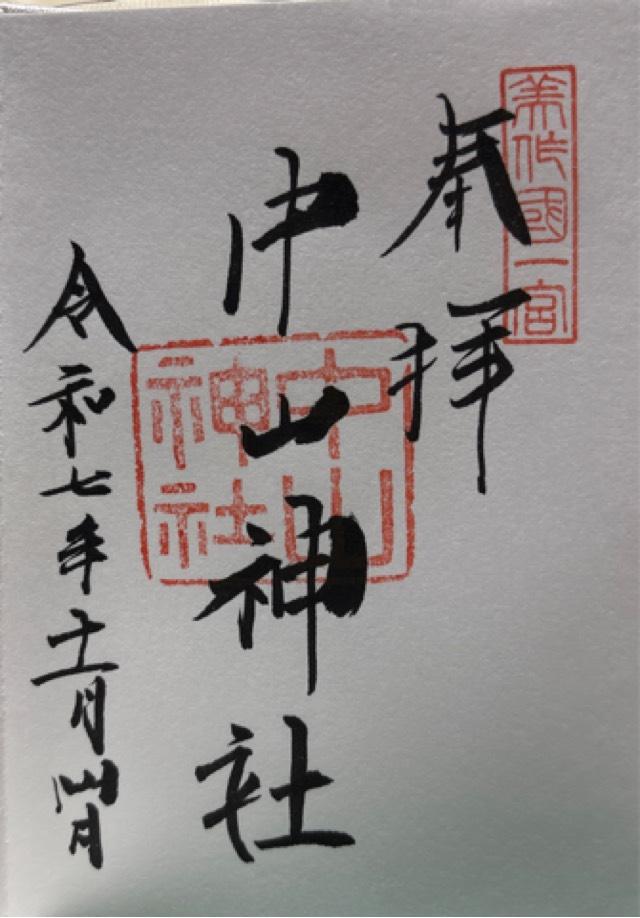 美作國一宮
奉拝
中山神社
中山
神社
令和七年十一月日